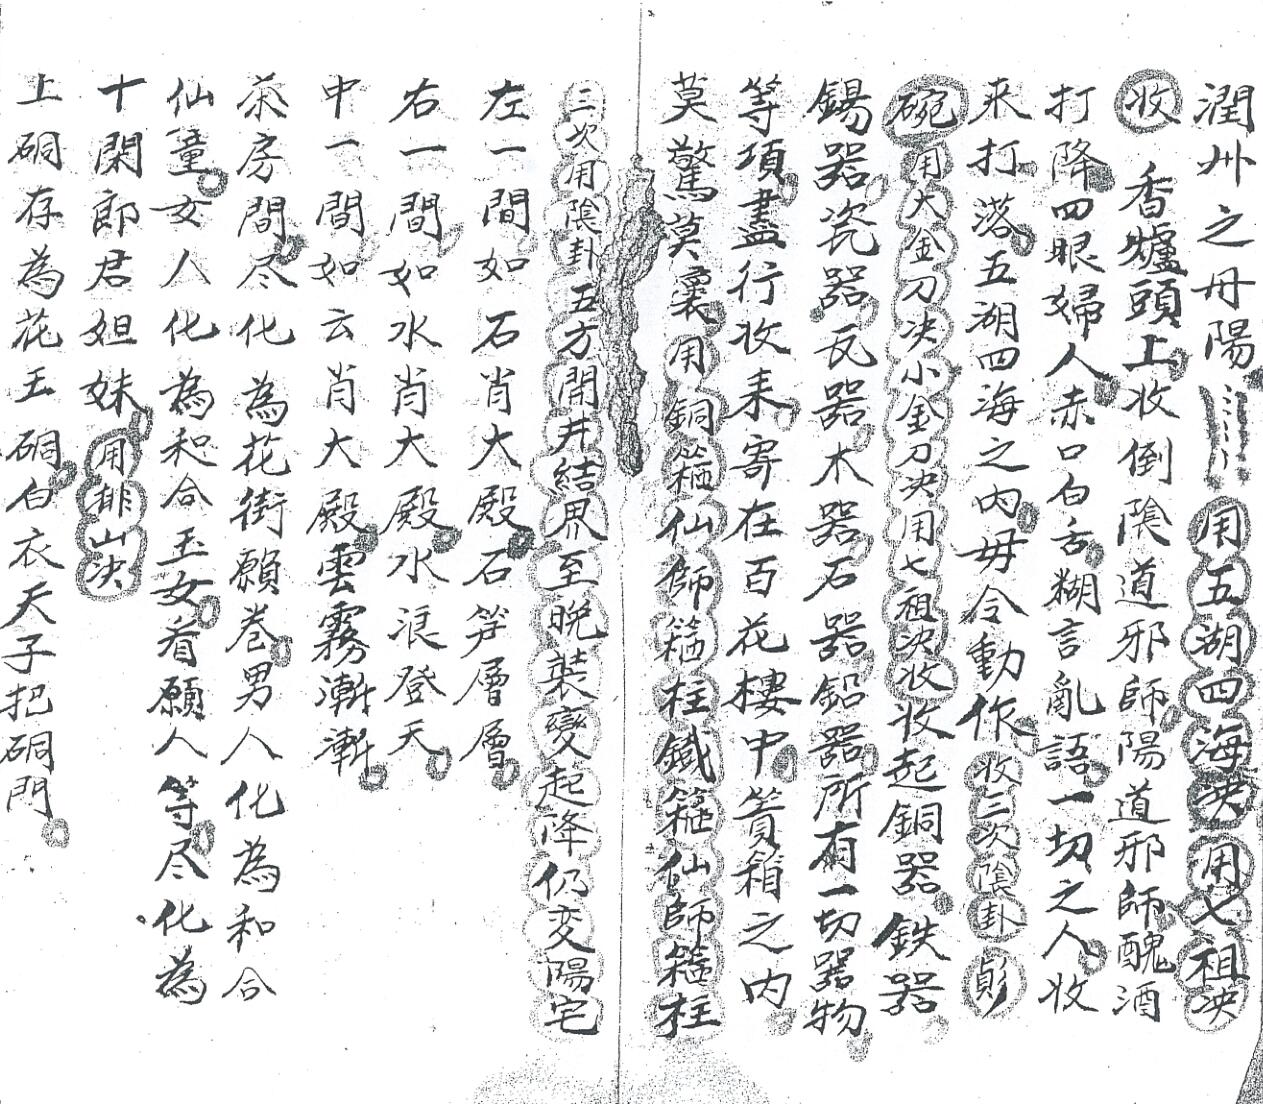 潤州之丹陽用五湖四海决用七祖决
收香爐頭上收倒隂道邪師陽道邪師醜酒
打降四眼婦人赤口白舌糊言亂語一切之人收
来打落五湖四海之内毋令動作收三次隂卦
碗用大金刀决小金刀决用七祖决收收起銅器鉄器
錫器瓷器瓦器木器石器鉛器所有一切器物
等項盡行收来寄在百花樓中篢箱之内
莫驚莫囊用銅箍仙師箍柱鐵箍仙師箍柱
三次用隂卦五方開井結界至晚裝變起降仍变陽宅
左一間如石肖大殿石笋層層
右一間如水肖大殿水浪登天
中一間如云肖大殿雲霧漸漸
茶房間尽化為花街願巻男人化為和合
仙童女人化為和合玉女看願人等尽化為
十閑郎君妲妹用排山决
上硐存為花王硐白衣天子把硐門